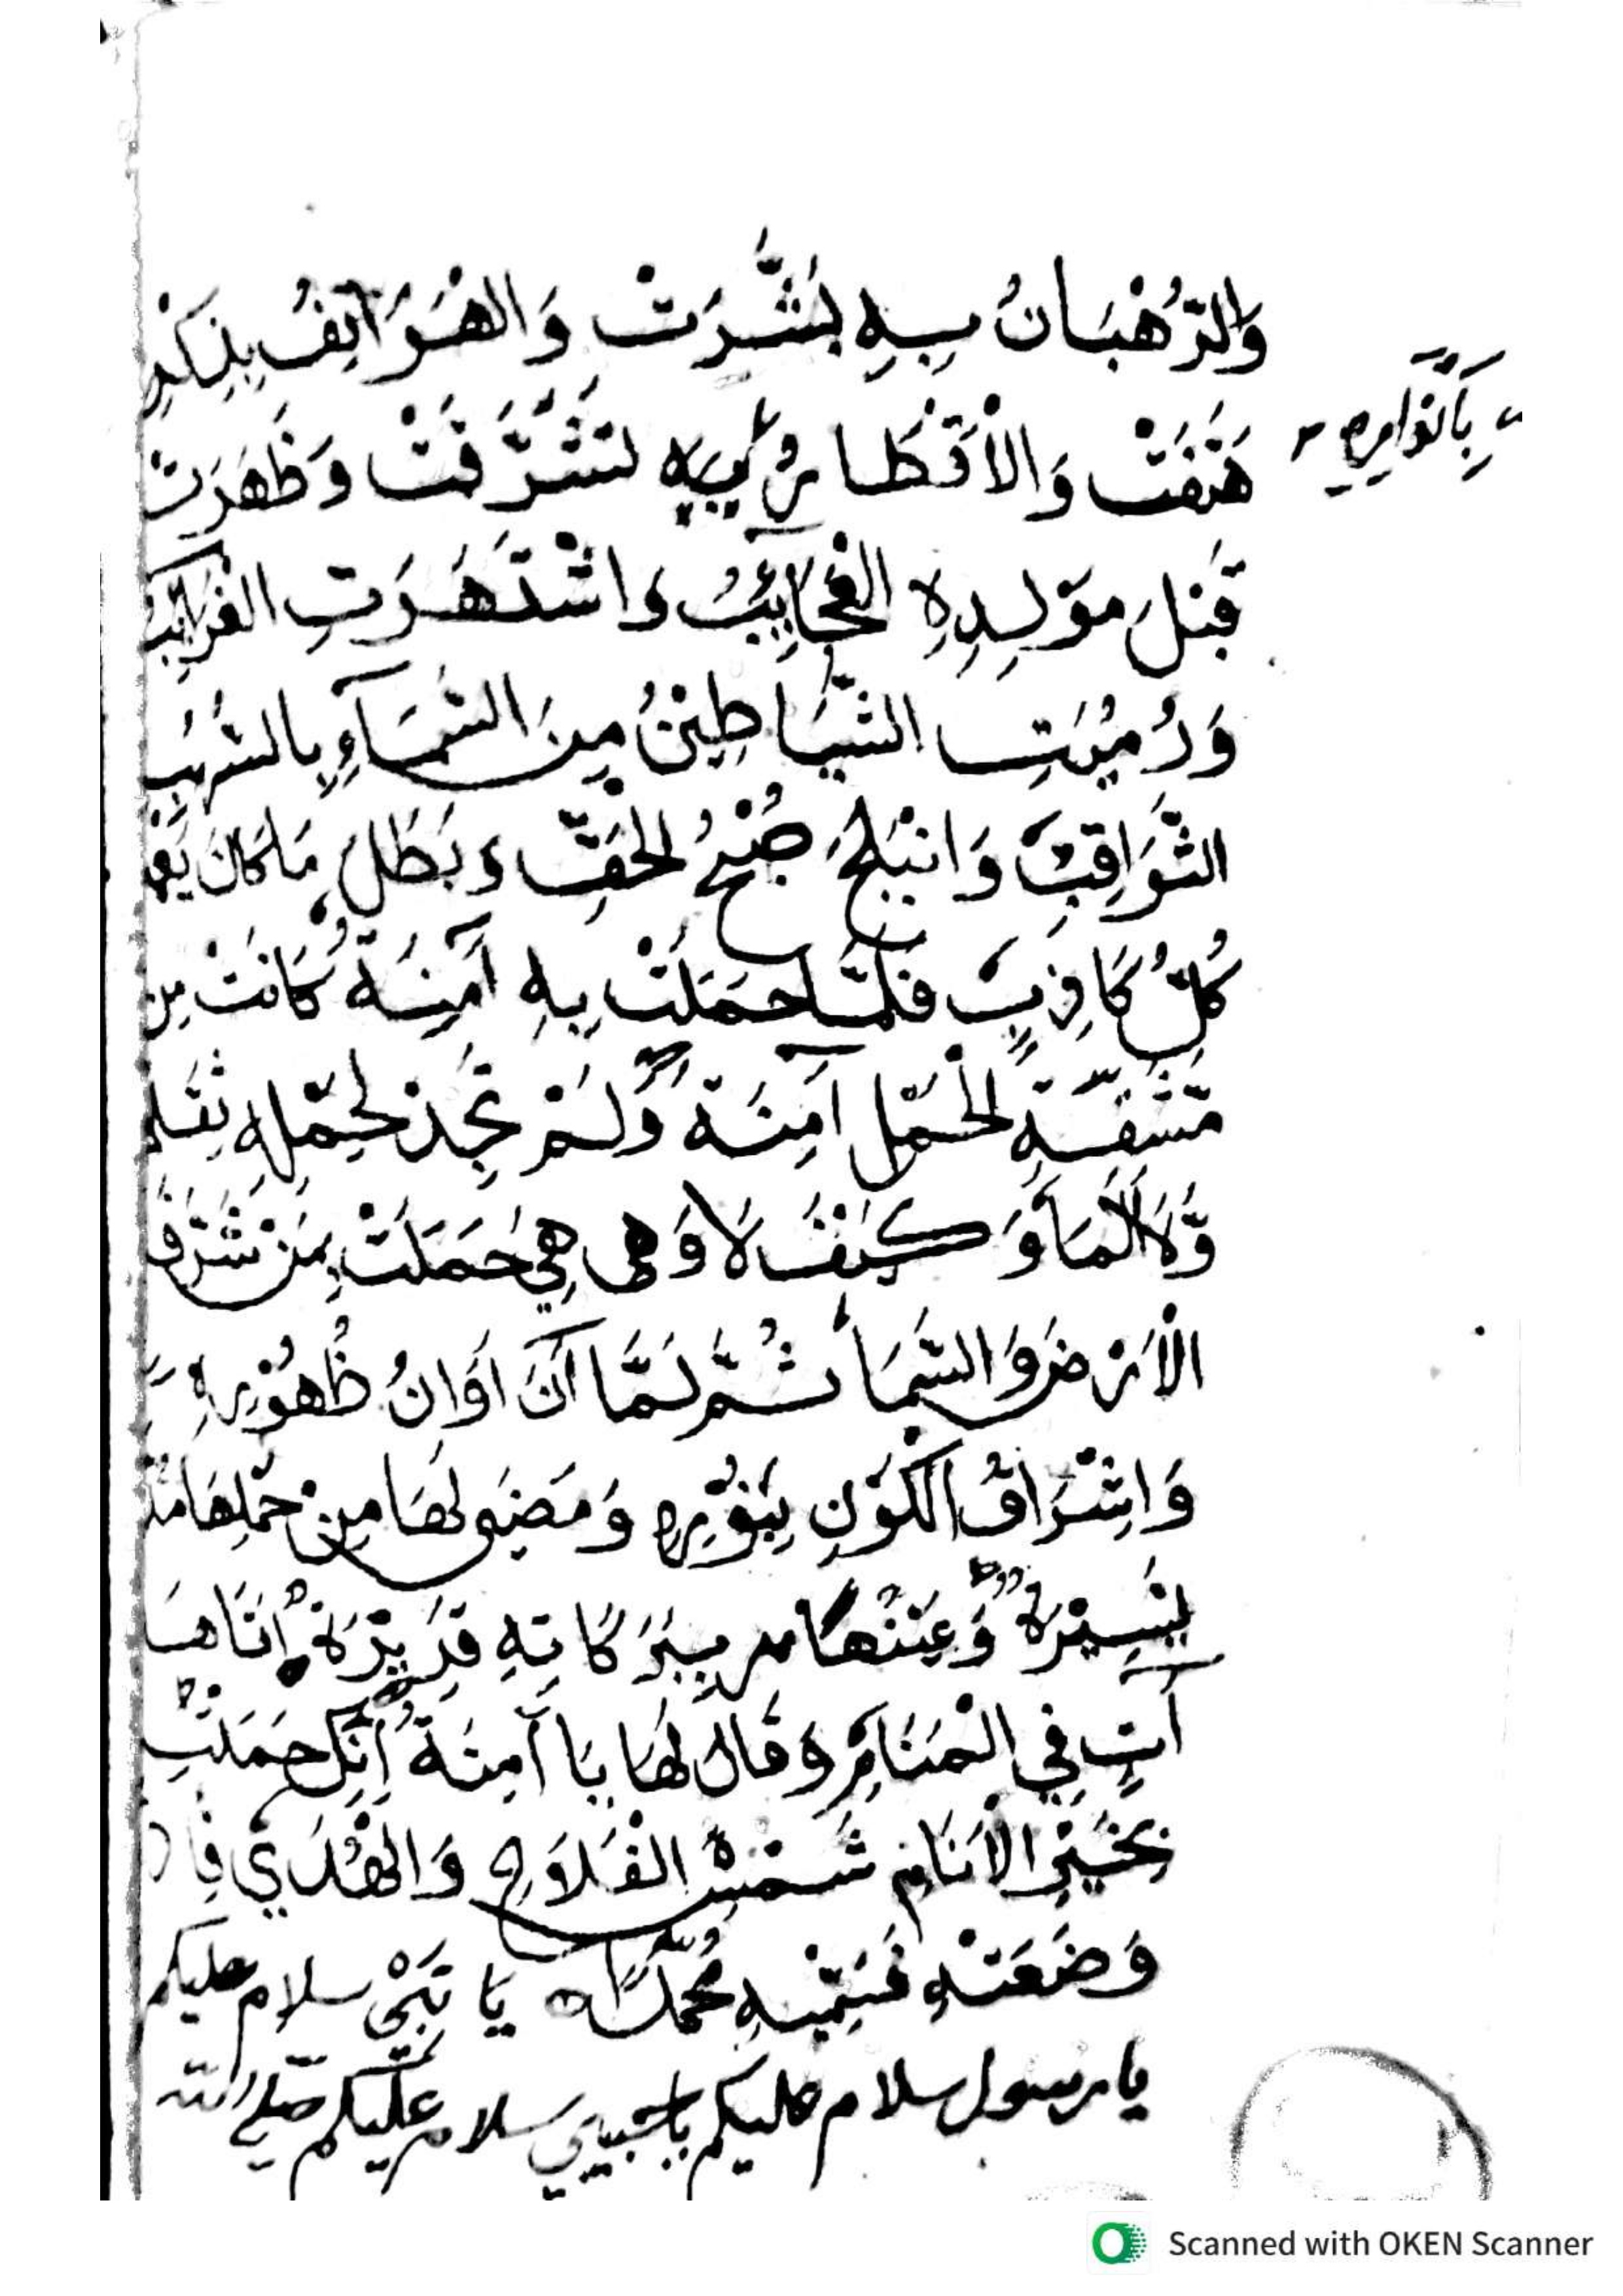 وَالرُّهْبَانُ بِهِ بَشَّرَتْ وَالْهَوَاتِفُ بِذِكْرِ
بِأَنْوَارِهِ
هَتَفَتْ وَالْأَقْطَارُ بِهِ تَشَرَّفَتْ وَظَهَرَتْ
قَبْلَ مَوْلِدِهِ الْعَجَآئِبُ وَاشْتَهَرَتِ الْغَرَائِبُ
وَرُمِيَتِ الشَّيَاطِيْنُ مِنَ السَّمَآءِ بِالشُّهُبِ
الثَّوَاقِبِ وَانْبَلَجَ صُبْحُ الْحَقِّ وَبَطَلَ مَا كَانَ
كُلُّ كَاذِبٍ فَلَمَّا حَمَلَتْ بِهِ آمِنَةُ كَانَتْ مِن
مَّشَقَّةِ الْحَمْلِ آمِنَةً وَّلَمْ تَجِدْ لِحَمْلِهِ ثِقَلًا
وَّلَا أَلَمًا وَكَيْفَ لَا وَهِيَ حَمَلَتْ بِمَنْ شَرَّفَ
الْأَرْضَ وَالسَّمَآءَ ثُمَّ لَمَّا آنَ أَوَانُ ظُهُوْرِهِ
وَإِشْرَاقُ الْكَوْنِ بِنُوْرِهِ وَمَضَى لَهَا مِنْ حَمْلِهَا
يَسِيْرَةٌ بِبَرَكَاتِهِ قَرِيْرَةٌ أَتَاهَا
آتٍ فِي الْمَنَامِ وَقَالَ لَهَا يَا آمِنَةُ إِنَّكِ حَمَلْتِ
بِخَيْرِ الْأَنَامِ شَمْسِ الْفَلَاحِ وَالْهُدَى فَإِذَا
وَضَعْتِهِ فَسَمِّيْهِ مُحَمَّدًا يَا نَبِيْ سلام عليكم
يا رسول سلام عليكم يا حبيبي سلام عليكم صلى الله
Scanned with OKEN Scanner